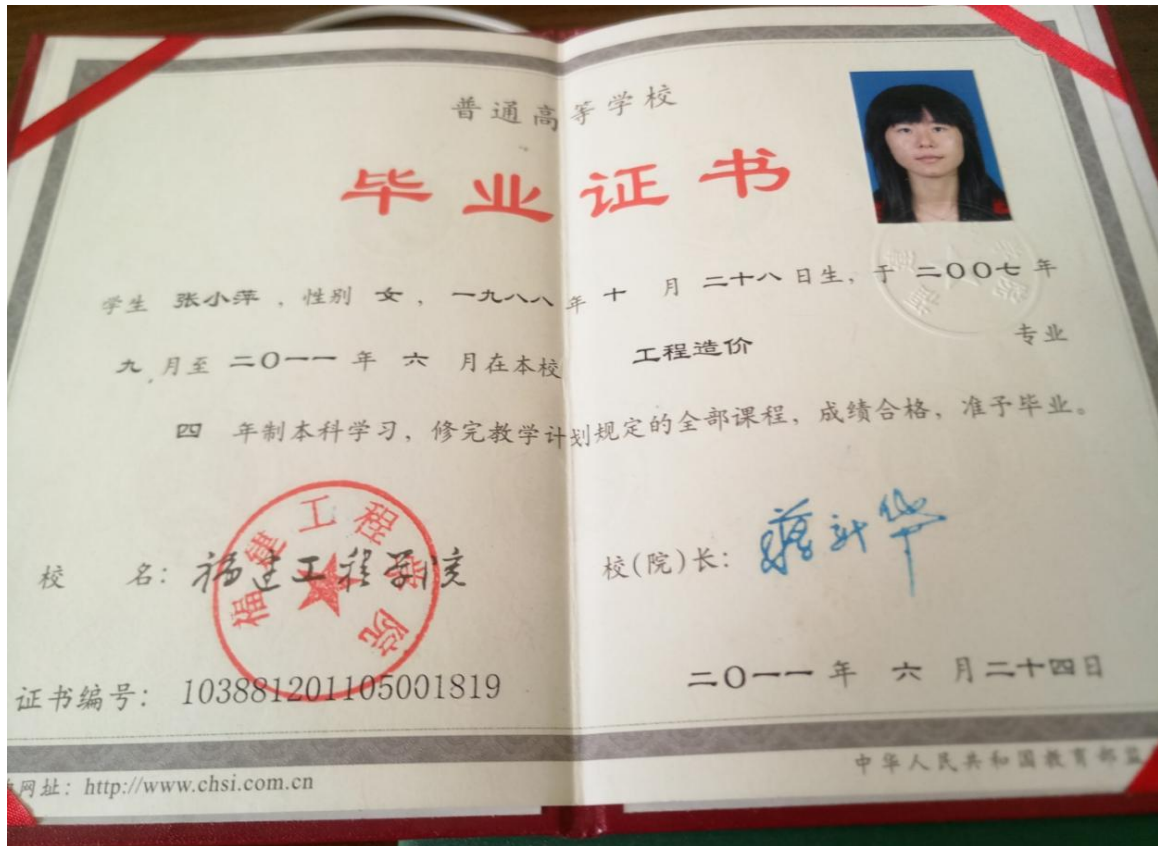 普通高等学校
毕业证书
学生 张小萍 ，性别 女 ，一九八八 年 十 月 二十八 日生，于 二〇〇七 年
九 月至 二〇一一 年 六 月在本校 工程造价 专业
四 年制本科学习，修完教学计划规定的全部课程，成绩合格，准予毕业。
福建工程学院
校 名：福建工程学院
校(院)长：
证书编号： 103881201105001819
二〇一一 年 六 月 二十四 日
网址：http://www.chsi.com.cn
中华人民共和国教育部监